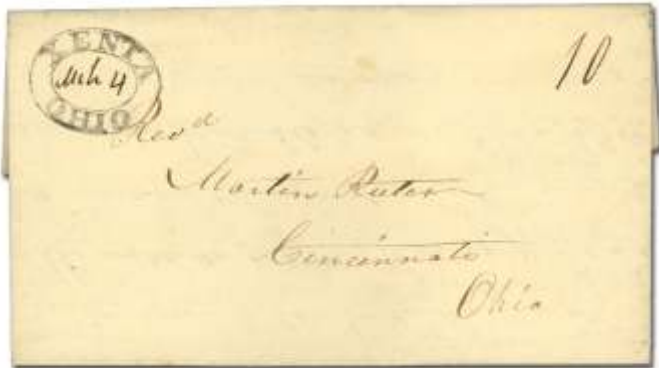 XENIA
Mch 4
OHIO
10
Revd
Martin Ruter
Cincinnati
Ohio